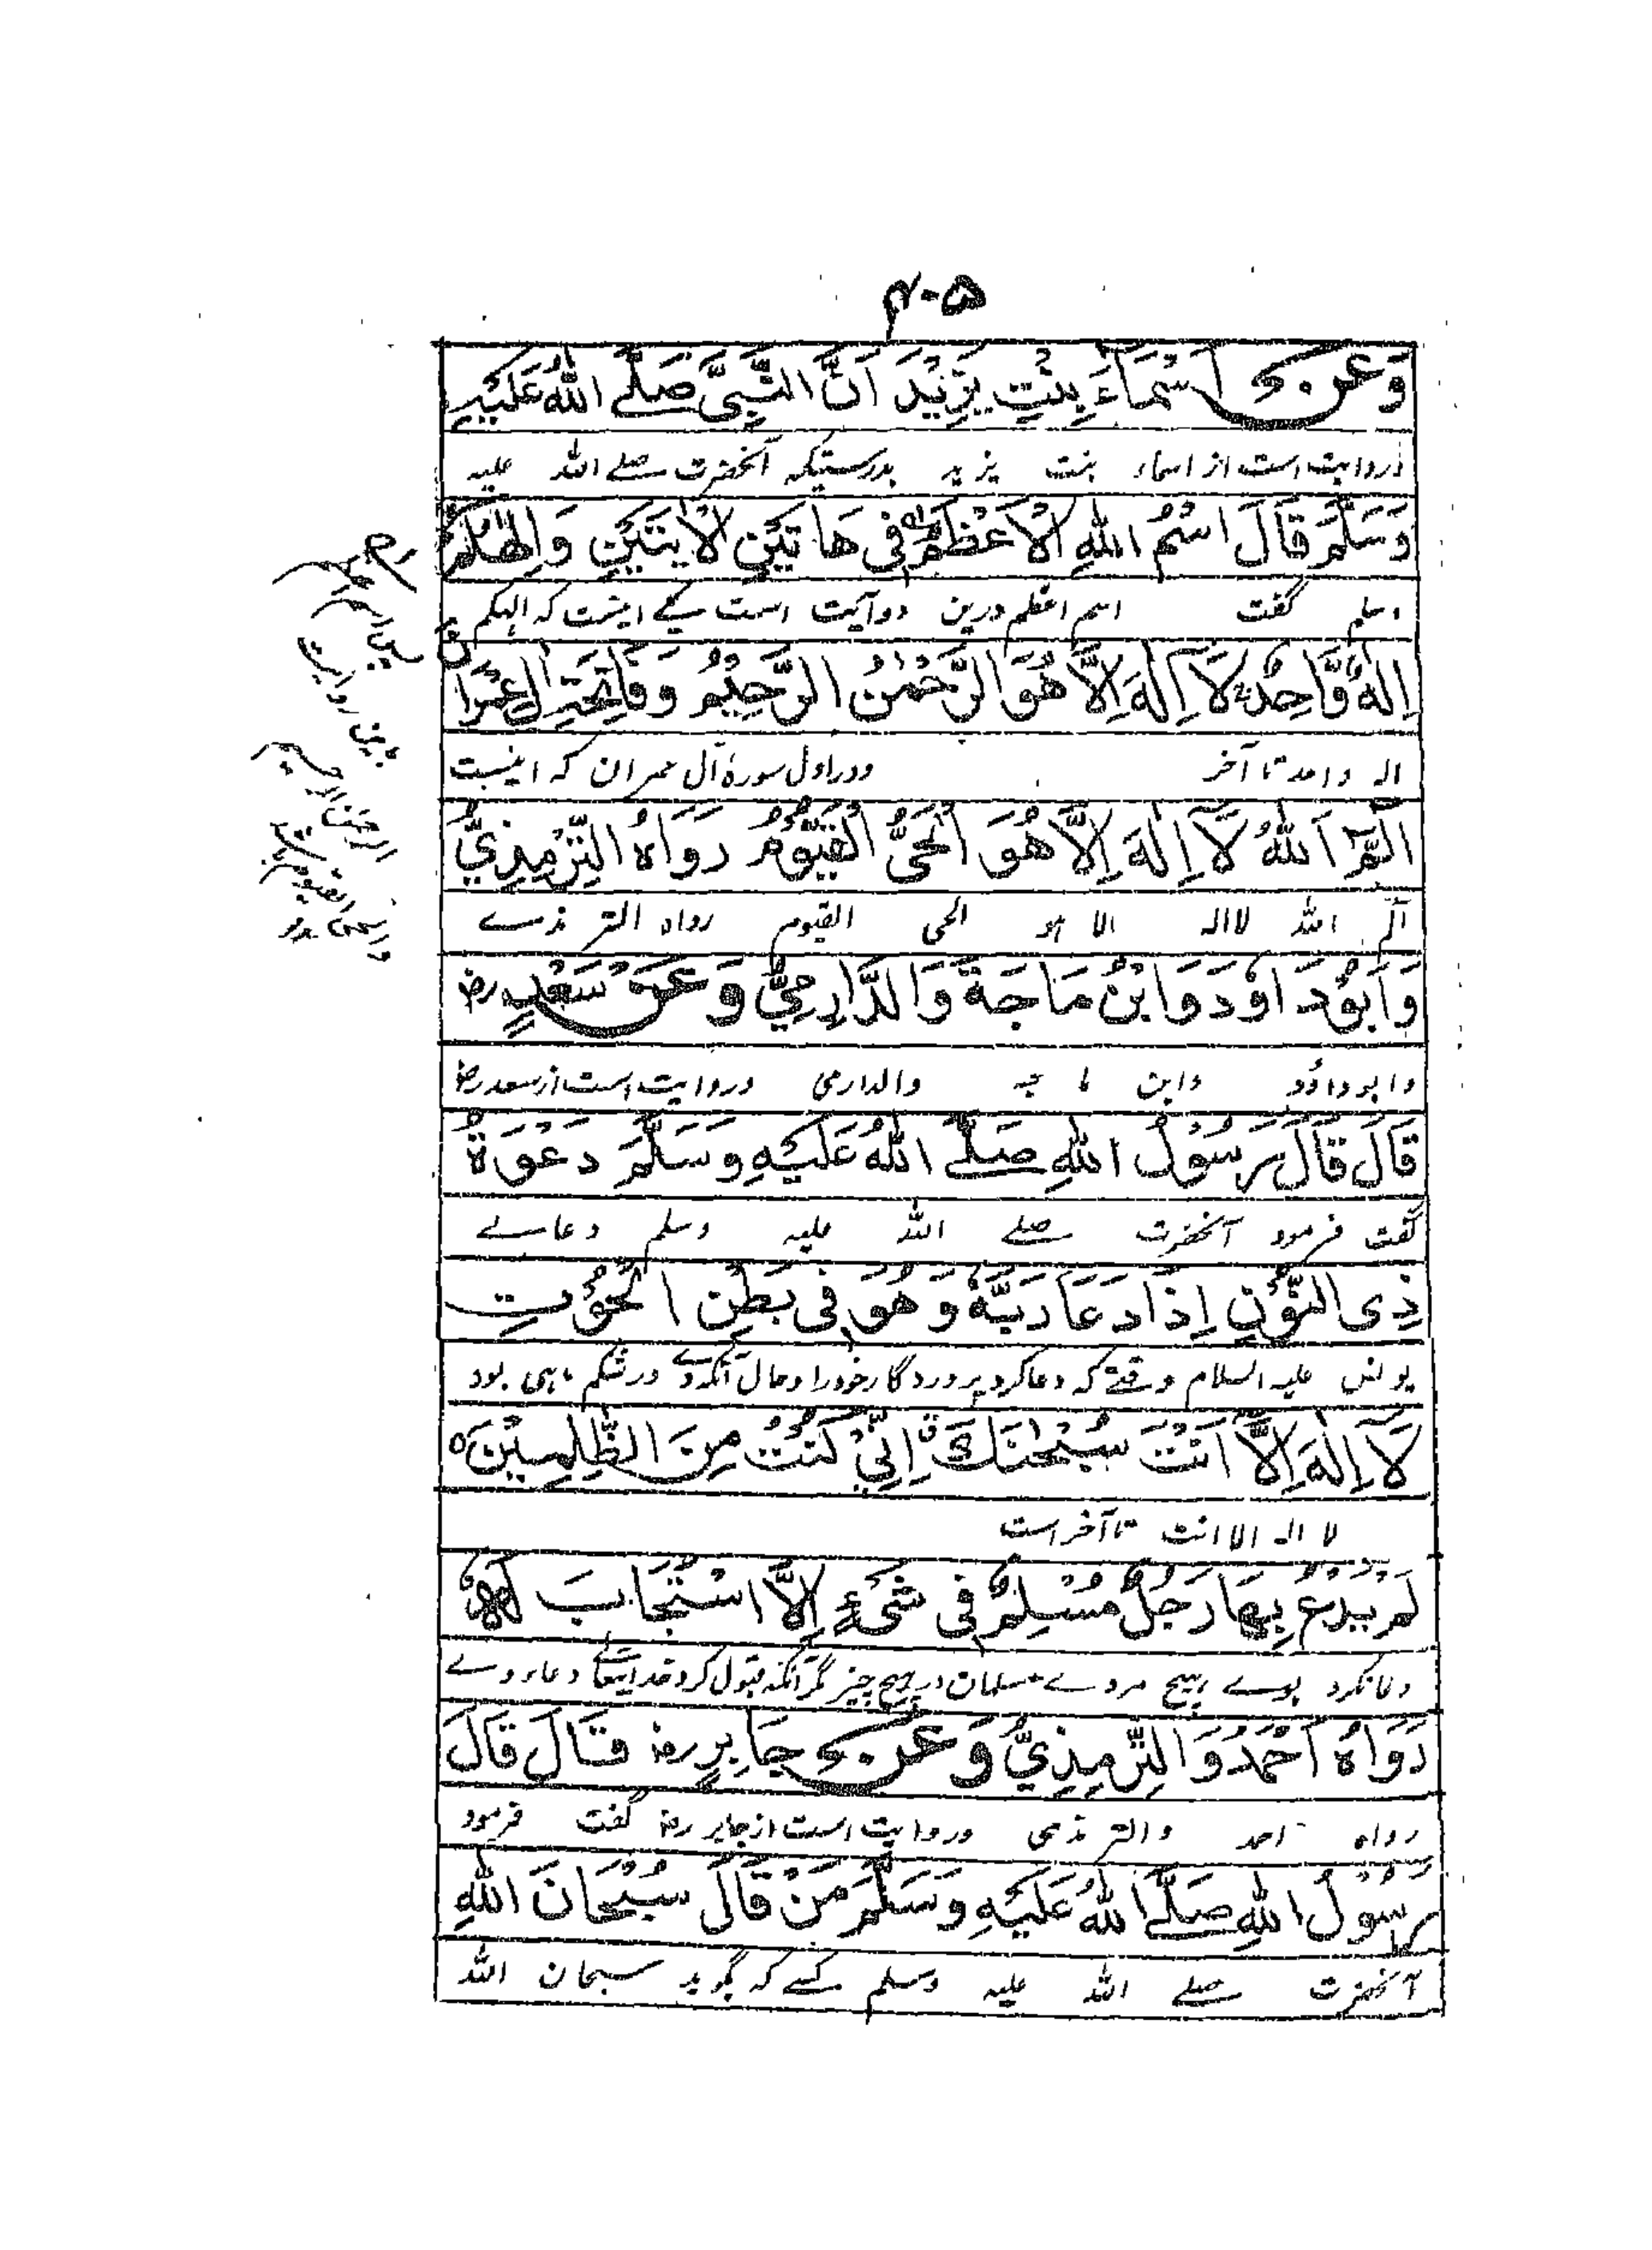 ۴۰۵
وَعَنْ اَسْمَاءَ بِنْتِ يَزِيْدَ اَنَّ النَّبِيَّ صَلَّے اللّٰهُ عَلَيْهِ
و روایت است از اسماء بنت یزید بدرستیکہ آنحضرت صلے اللہ علیہ
وَسَلَّمَ قَالَ اسْمُ اللّٰهِ الْاَعْظَمُ فِى هَاتَيْنِ الْاٰيَتَيْنِ وَاِلٰهُكُمْ
وسلم گفت اسم اعظم درین دو آیت است یکے اینست کہ الہکم
اِلٰهٌ وَّاحِدٌ لَآ اِلٰهَ اِلَّا هُوَ الرَّحْمٰنُ الرَّحِيْمُ وَفَاتِحَةِ اٰلِ عِمْرَانَ
الہ واحد تا آخر ودر اول سورۂ آل عمران کہ اینست
الٓمّٓ اَللّٰهُ لَآ اِلٰهَ اِلَّا هُوَ الْحَىُّ الْقَيُّوْمُ رَوَاهُ التِّرْمِذِيُّ
الم اللہ لا الہ الا ہو الحی القیوم رواہ الترمذے
وَاَبُوْدَاوٗدَ وَابْنُ مَاجَةَ وَالدَّارِمِيُّ وَعَنْ سَعْدٍ رض
وابوداؤد وابن ماجہ والدارمی و روایت است از سعد رض
قَالَ قَالَ رَسُوْلُ اللّٰهِ صَلَّے اللّٰهُ عَلَيْهِ وَسَلَّمَ دَعْوَةُ
گفت فرمود آنحضرت صلے اللہ علیہ وسلم دعاے
ذِى النُّوْنِ اِذَا دَعَا رَبَّهٗ وَهُوَ فِى بَطْنِ الْحُوْتِ
یونس علیہ السلام وقتے کہ دعا کرد پروردگار خود را وحال آنکہ وے در شکم ماہی بود
لَآ اِلٰهَ اِلَّا اَنْتَ سُبْحٰنَكَ اِنِّىْ كُنْتُ مِنَ الظّٰلِمِيْنَ ه
لا الہ الا انت تا آخر است
لَمْ يَدْعُ بِهَا رَجُلٌ مُسْلِمٌ فِى شَىْءٍ اِلَّا اسْتَجَابَ لَهٗ
دعا نکرد بوے ہیچ مردے مسلمان در ہیچ چیز مگر آنکہ قبول کرد خدایتعالے دعاء وے
رَوَاهُ اَحْمَدُ وَالتِّرْمِذِيُّ وَعَنْ جَابِرٍ رض قَالَ قَالَ
رواہ احمد والترمذی و روایت است از جابر رض گفت فرمود
رَسُوْلُ اللّٰهِ صَلَّے اللّٰهُ عَلَيْهِ وَسَلَّمَ مَنْ قَالَ سُبْحَانَ اللّٰهِ
آنحضرت صلے اللہ علیہ وسلم کسے کہ بگوید سبحان اللہ